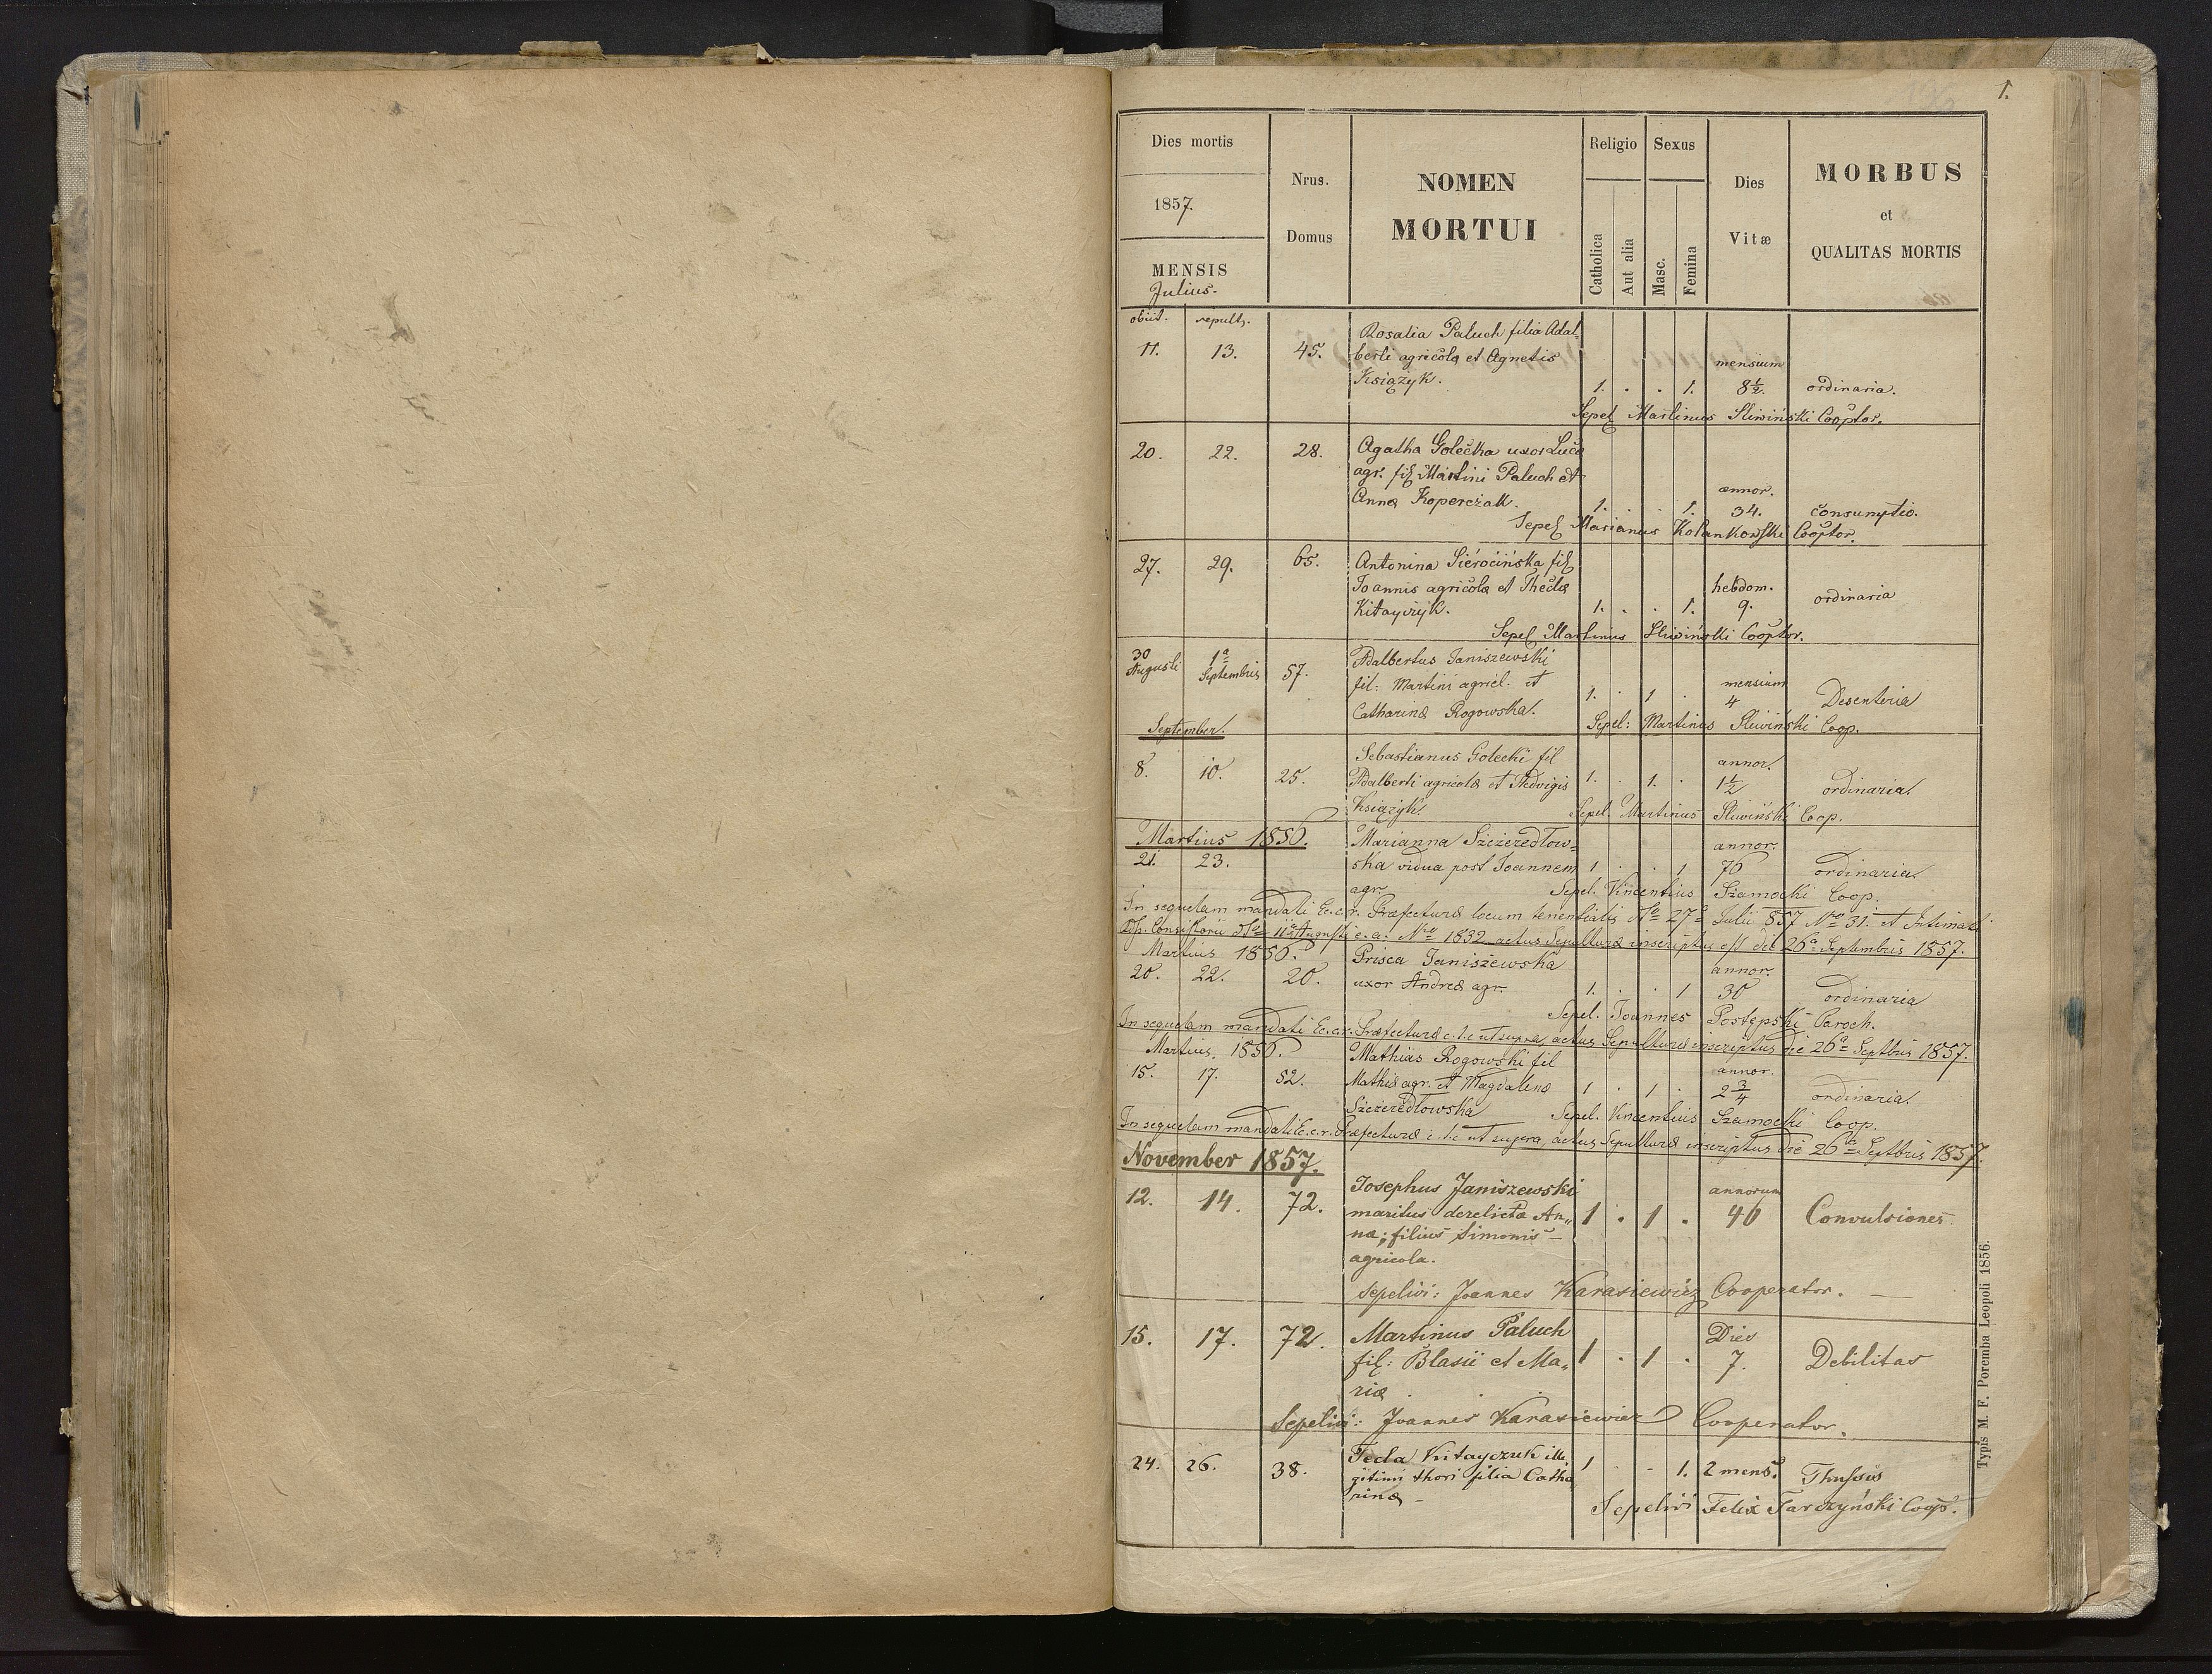 1.
Dies mortis
1857.
MENSIS
Julius.
Nrus.
Domus
NOMEN
MORTUI
Religio
Catholica
Aut alia
Sexus
Masc.
Femina
Dies
Vitæ
MORBUS
et
QUALITAS MORTIS
obiit. sepult.
Rosalia Paluch filia Adal
11. 13. 45. berti agricolæ et Agnetis
mensium
Książyk. 1. . . 1. 8½. ordinaria.
Sepel Martinus Sliwiński Cooptor.
20. 22. 28. Agatha Golečka uxor Lucæ
agr. fil Martini Paluch et
annor.
Annæ Koperczak. 1. . . 1. 34. Consumptio.
Sepel Marianus Kolankowski Cooptor.
27. 29. 65. Antonina Sierocińska fil
Joannis agricolæ et Theclæ hebdom.
Kitayczyk. 1. . . 1. 9. ordinaria
Sepel Martinus Sliwiński Cooptor.
30 Augusti 1ª Septembris 57. Adalbertus Janiszewski
fil: Martini agricl. et mensium
1. . 1 . 4 Desenteria
Catharinæ Rogowska.
Sepel: Martinus Sliwiński Coop.
September.
Sebastianus Golecki fil annor.
8. 10. 25. Adalberti agricolæ et Hedvigis 1. . 1. . 1½ ordinaria.
Książyk.
Sepel. Martinus Sliwiński Coop.
Martius 1856. Marianna Szczeredłow= annor.
21. 23. ska vidua post Joannem 1 . . 1 76 ordinaria.
agr. Sepel. Vincentius Szamocki Coop.
In sequelam mandati C.c.r. Præfecturæ locum tenentialis dto 27ª Julii 857 Nro 31. et Intimati
Consistorii dto 11ª Augusti c.a. Nro 1832 actus Sepulturæ inscriptus est die 26ª Septembris 1857.
Martius 1856. Prisca Janiszewska annor.
20. 22. 20. uxor Andreæ agr. 1. . . 1 30 ordinaria
Sepel. Joannes Postępski Paroch.
In sequelam mandati C.c.r. Præfecturæ c.l.c ut supra, actus Sepulturæ inscriptus die 26ª Septbris 1857.
Martius. 1856. Mathias Rogowski fil annor.
15. 17. 52. Mathiæ agr. et Magdalenæ 1 . 1 . 2¾ ordinaria.
Szczeredłowska Sepel. Vincentius Szamocki Coop.
In sequelam mandati C.c.r. Præfecturæ c.l.c ut supra, actus Sepulturæ inscriptus die 26ta Septbris 1857.
November 1857.
12. 14. 72. Josephus Janiszewski annorum
maritus derelictæ An„ 1 . 1 . 46 Convulsiones.
næ; filius Simonis –
agricola.
sepelivi: Joannes Karasiewicz Cooperator. —
15. 17. 72. Martinus Paluch Dies
fil: Blasii et Ma„ 1 . 1 . 7. Debilitas
riæ
Sepelivi: Joannes Karasiewicz Cooperator.
24. 26. 38. Tecla Kitayczuk ille
gitimi thori filia Catha 1 . . 1. 2 mens. Thussis
rinæ –
Sepelivi Felix Tarczyński Coop.
Typis M. F. Poremba Leopoli 1856.